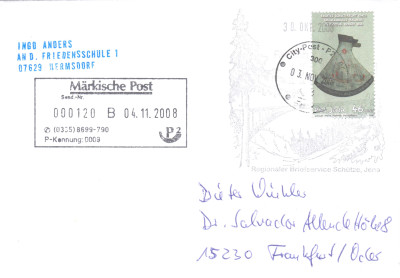 INGO ANDERS
AN D. FRIEDENSSCHULE 1
07629 HERMSDORF
Märkische Post
Send.-Nr.
000120 B 04.11.2008
(0335) 8699-790
P-Kennung: 0003
P2
30. OKT. 2008
City-Post-P
03. NOV
46
Regionaler Briefservice Schütze, Jena
Dieter Winkler
Dr. Salvador Allende Höhe 8
15230 Frankfurt/Oder